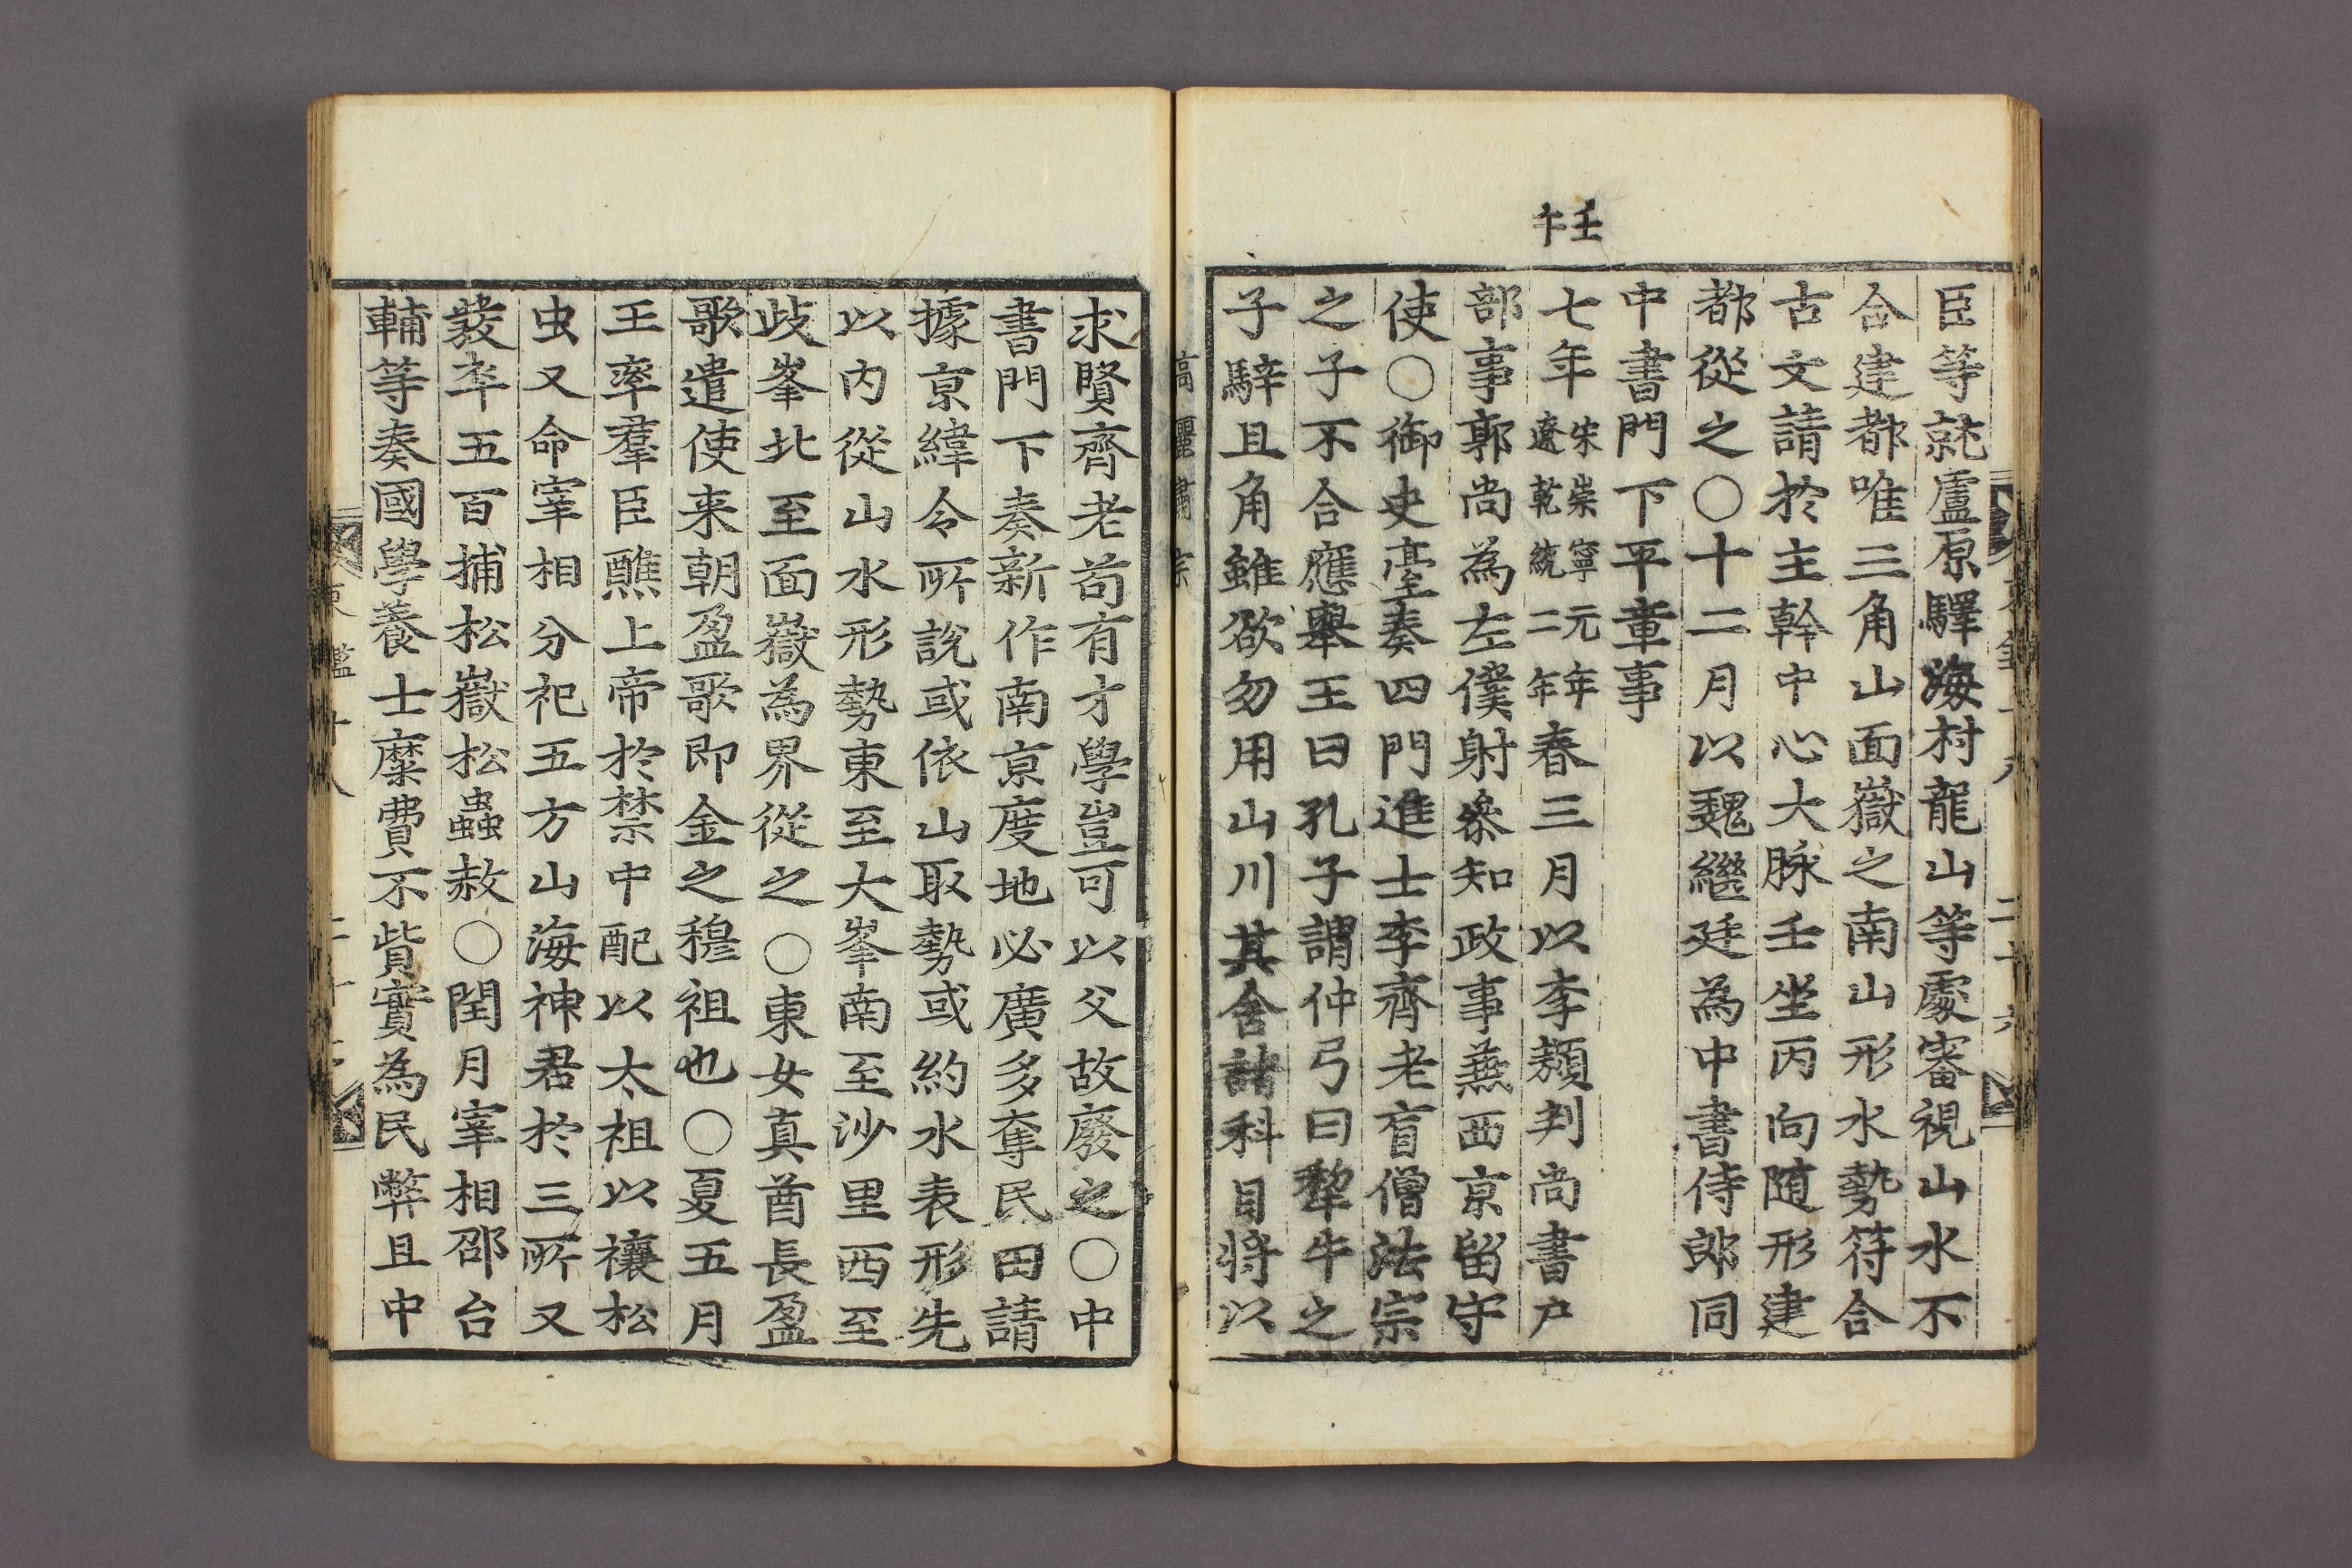 壬午
臣等就盧原驛海村龍山等處審視山水不
合建都唯三角山面嶽之南山形水勢符合
古文請於主幹中心大脉壬坐丙向隨形建
都從之〇十二月以魏繼廷為中書侍郎同
中書門下平章事
七年宋崇寧元年遼乾統二年春三月以李䫨判尚書戶
部事郭尚為左僕射叅知政事兼西京留守
使〇御史臺奏四門進士李齊老盲僧法宗
之子不合應舉王曰孔子謂仲弓曰犂牛之
子騂且角雖欲勿用山川其舍諸科目將以
高麗肅宗
求賢齊老苟有才學豈可以父故廢之〇中
書門下奏新作南京度地必廣多奪民田請
據京緯令所說或依山取勢或約水表形先
以內從山水形勢東至大峯南至沙里西至
歧峯北至面嶽為界從之〇東女真酋長盈
歌遣使来朝盈歌即金之穆祖也〇夏五月
王率羣臣醮上帝於禁中配以太祖以禳松
虫又命宰相分祀五方山海神君於三所又
發卒五百捕松嶽松蟲赦〇閏月宰相邵台
輔等奏國學養士糜費不貲實為民弊且中